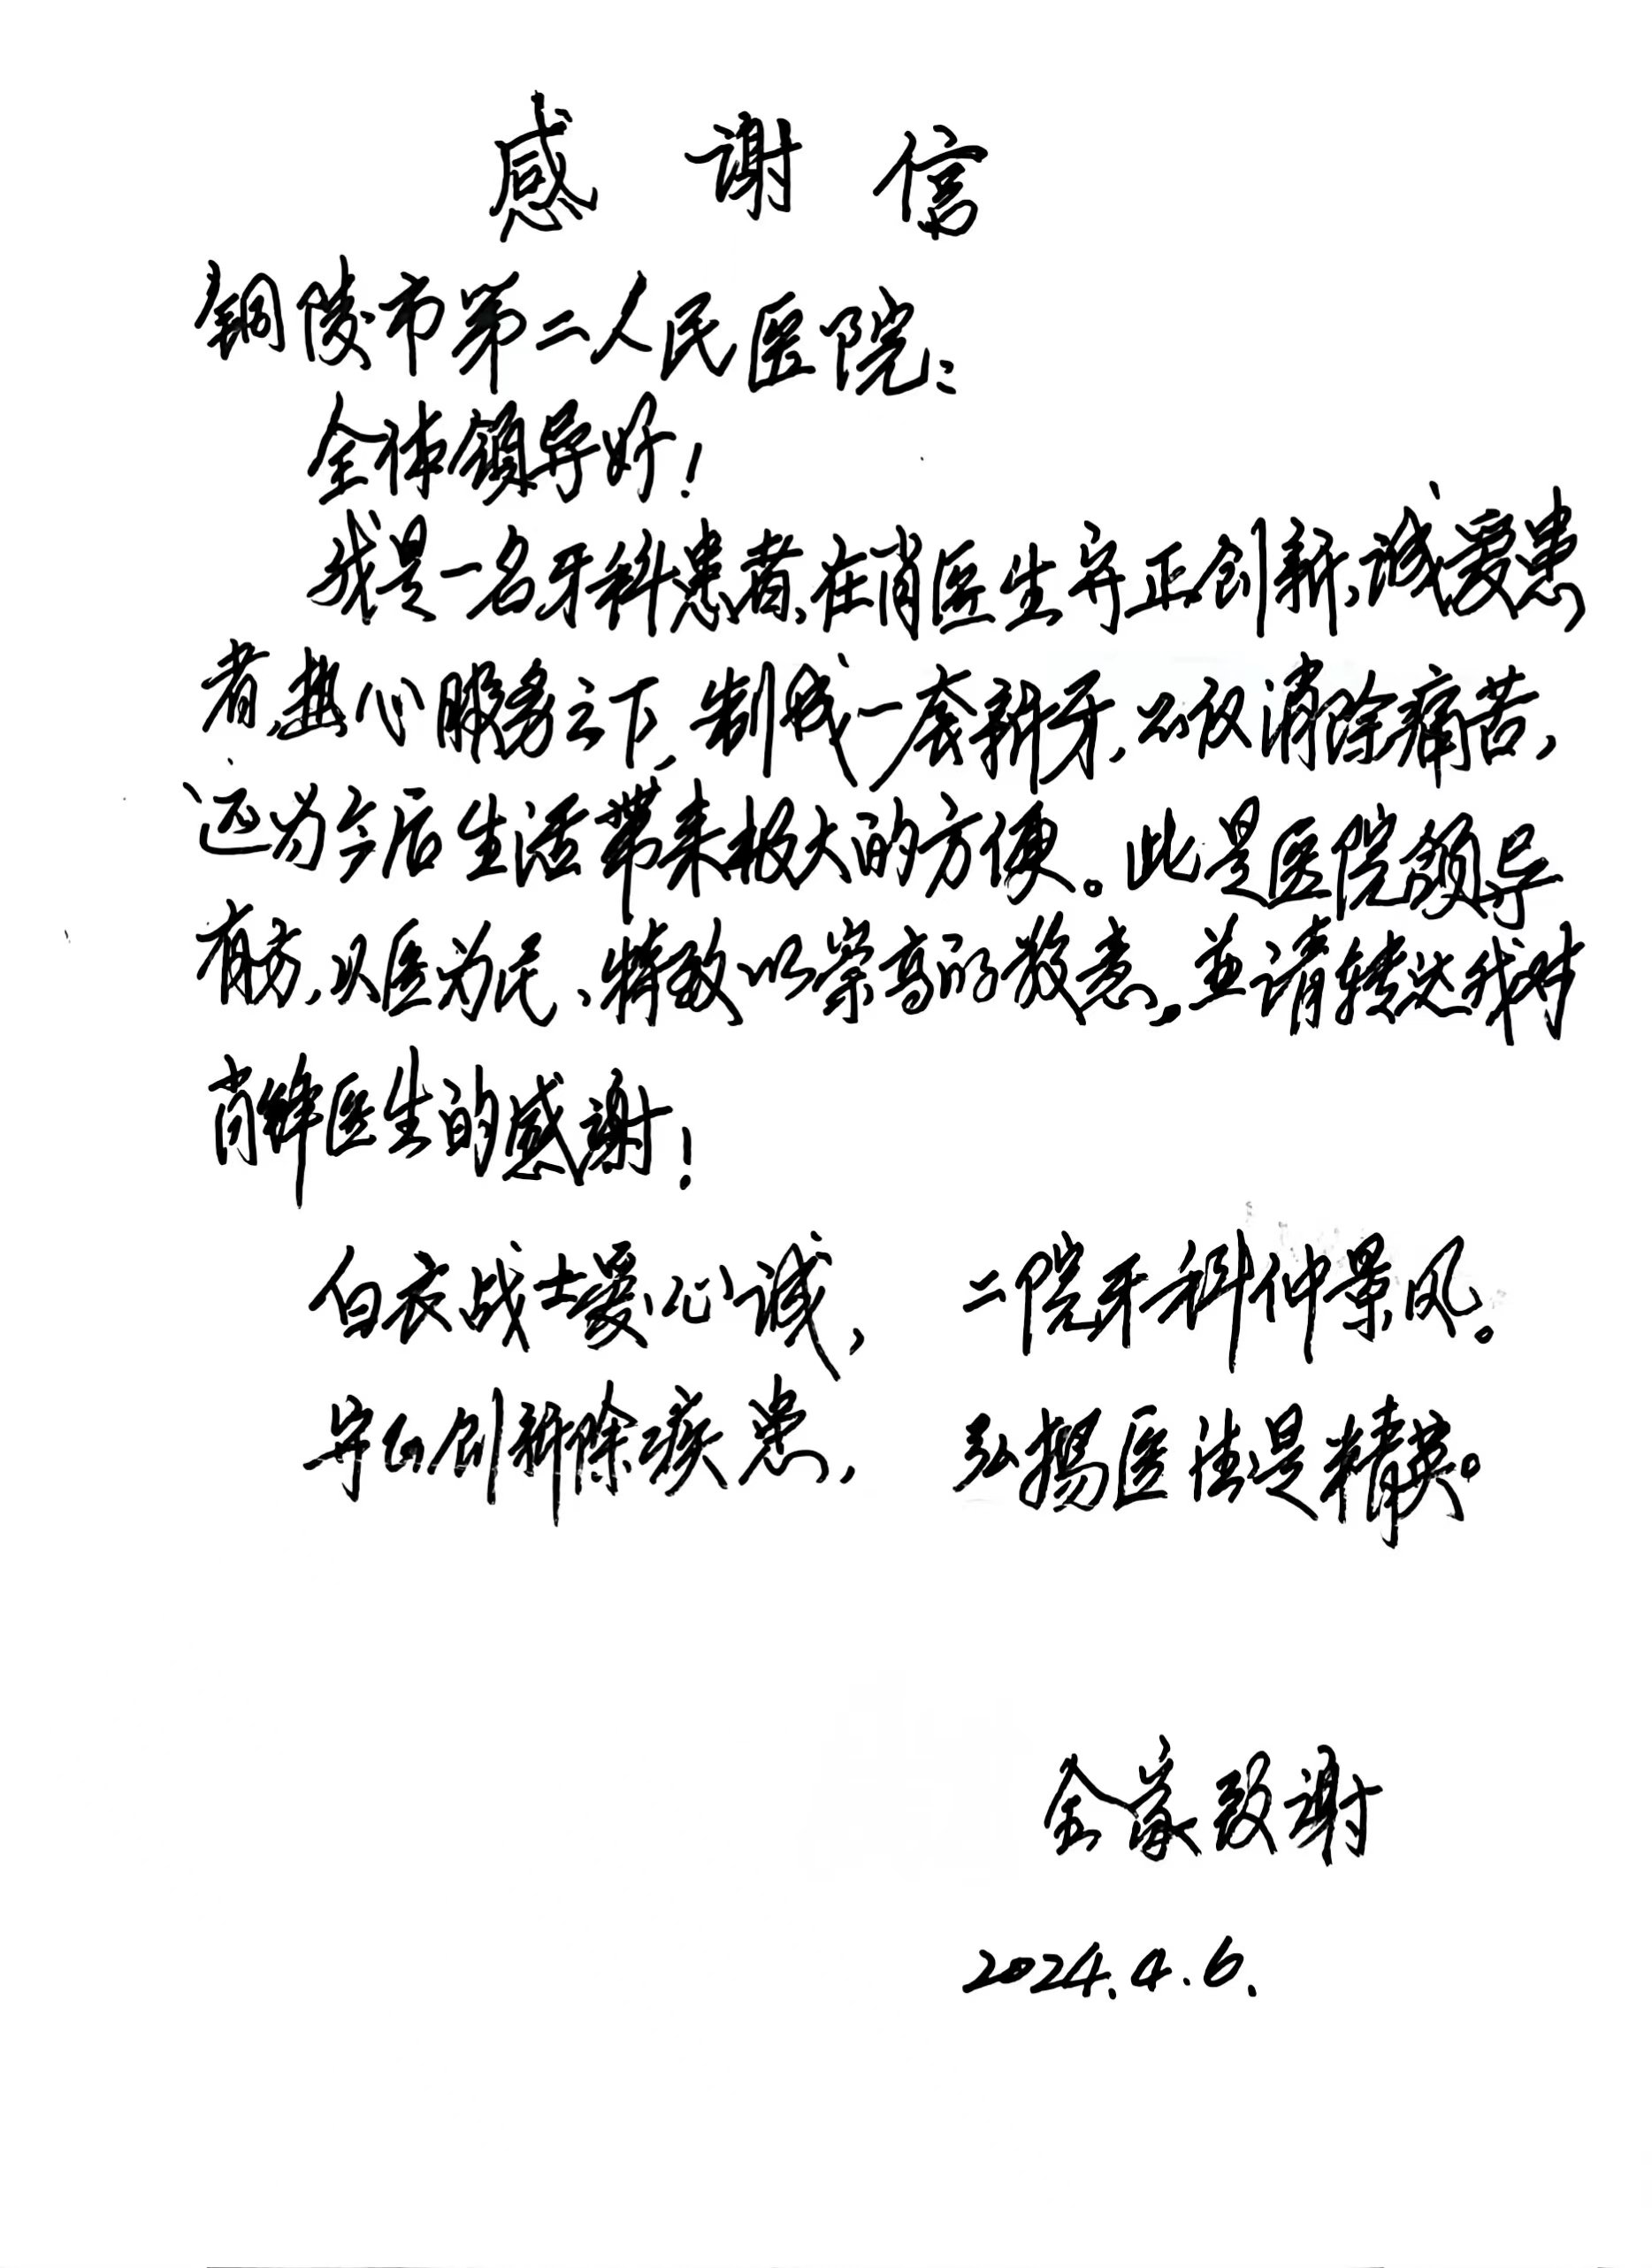 感谢信
铜陵市第二人民医院：
全体领导好！
我是一名牙科患者，在肖医生守正创新，诚爱患
者，热心服务之下，制成一套新牙，不仅消除痛苦，
还为今后生活带来极大的方便。此是医院领导
有方，从医为民，特致以崇高的敬意，並请转达我对
肖医生的感谢！
白衣战士爱心诚， 二院牙科仲景风。
守正创新除疾患， 弘揚医法是精英。
全家致谢
2024.4.6.